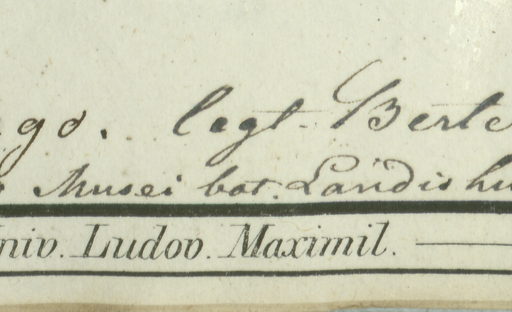 go. legt. Berte
Musei bot. Landishu
niv. Ludov. Maximil.